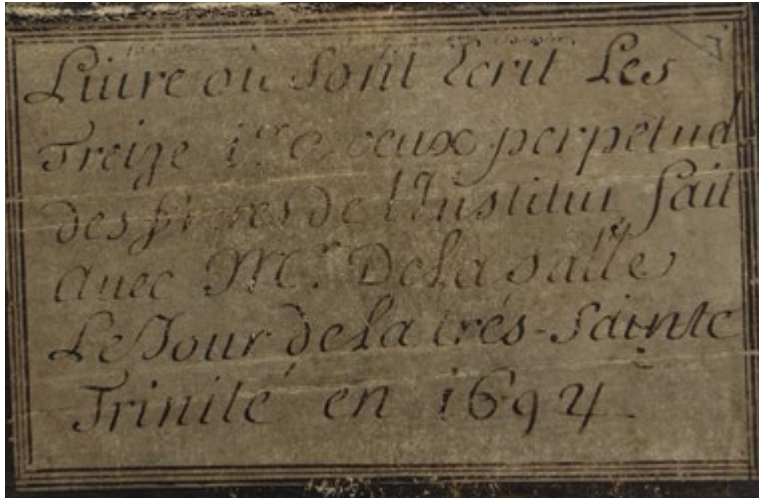 Livre où sont Ecrit Les
Treize 1ers voeux perpétuel
des frères de l'Institut, fait
avec Mr. De la Salle
Le Jour de la trés-Sainte
Trinité en 1694